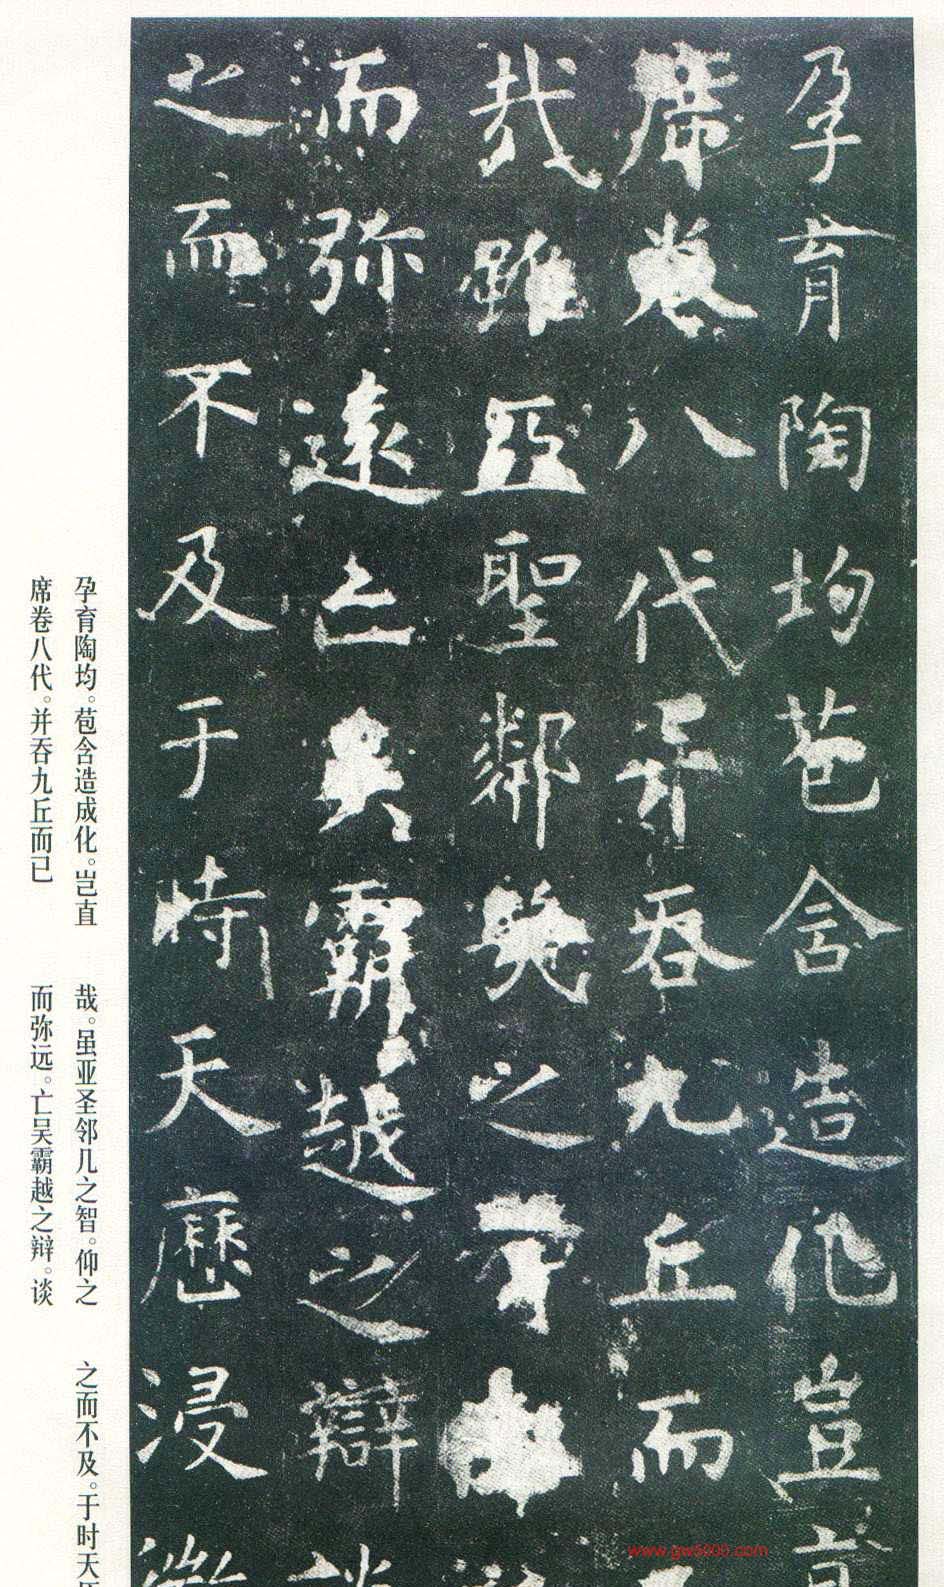 孕育陶均苞含造化豈直
席卷八代并吞九丘而
哉雖亞聖鄰幾之
而弥遠亡吳霸越之辯談
之而不及于時天歷浸微
孕育陶均。苞含造成化。岂直
席卷八代。并吞九丘而已
哉。虽亚圣邻几之智。仰之
而弥远。亡吴霸越之辩。谈
之而不及。于时天历
www.gw5000.com